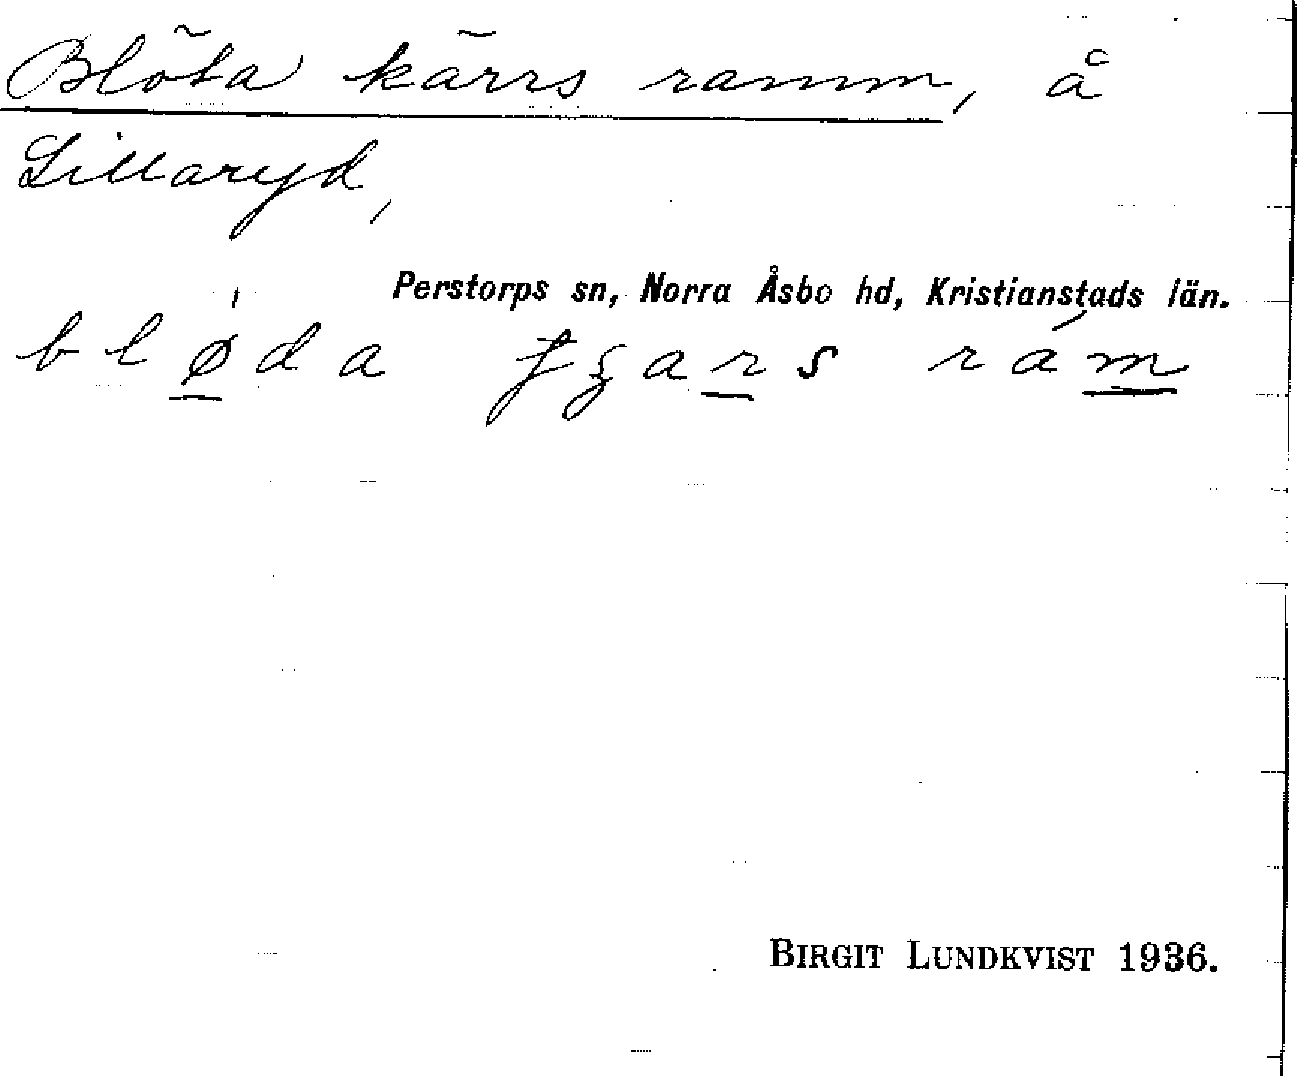 Blöta kärrs ramm, å
Lillaryd,
Perstorps sn, Norra Åsbo hd, Kristianstads län.
bløda rám
BIRGIT LUNDKVIST 1936.